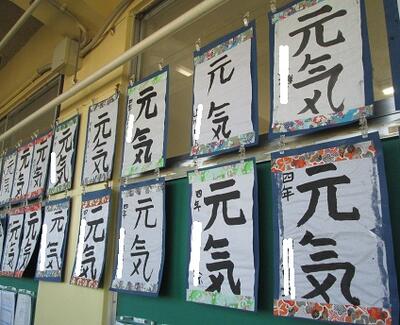 元気
元気
元気
元気
元気
元気
元気
元気
元気
元気
元気
元気
元気
四年
元気
四年
元気
四年